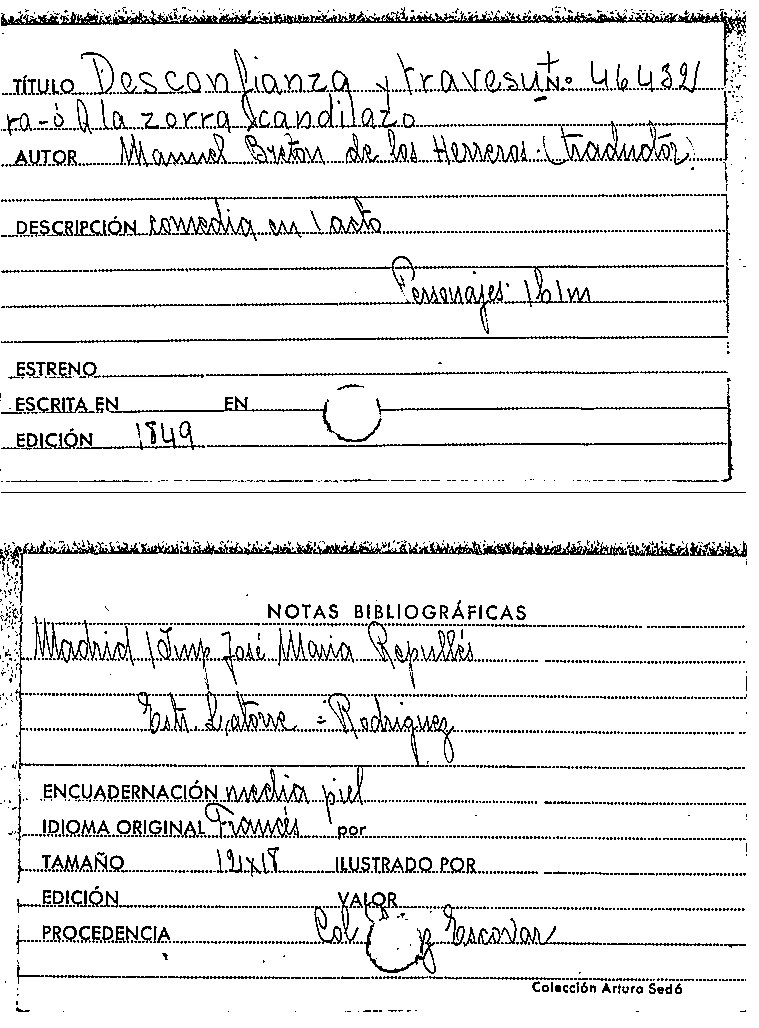 TÍTULO Desconfianza y travesu N.º 46432
ra-ó A la zorra candilazo
AUTOR Manuel Breton de los Herreros. (traductor)
DESCRIPCIÓN comedia en 1 acto
Personajes: 1h1m
ESTRENO
ESCRITA EN EN
EDICIÓN 1849
NOTAS BIBLIOGRÁFICAS
Madrid / Imp José Maria Repullés
Estr. Latorre - Rodriguez
ENCUADERNACIÓN media piel
IDIOMA ORIGINAL Francés por
TAMAÑO 12x18 ILUSTRADO POR
EDICIÓN VALOR
PROCEDENCIA Col Escovar
Colección Arturo Sedó